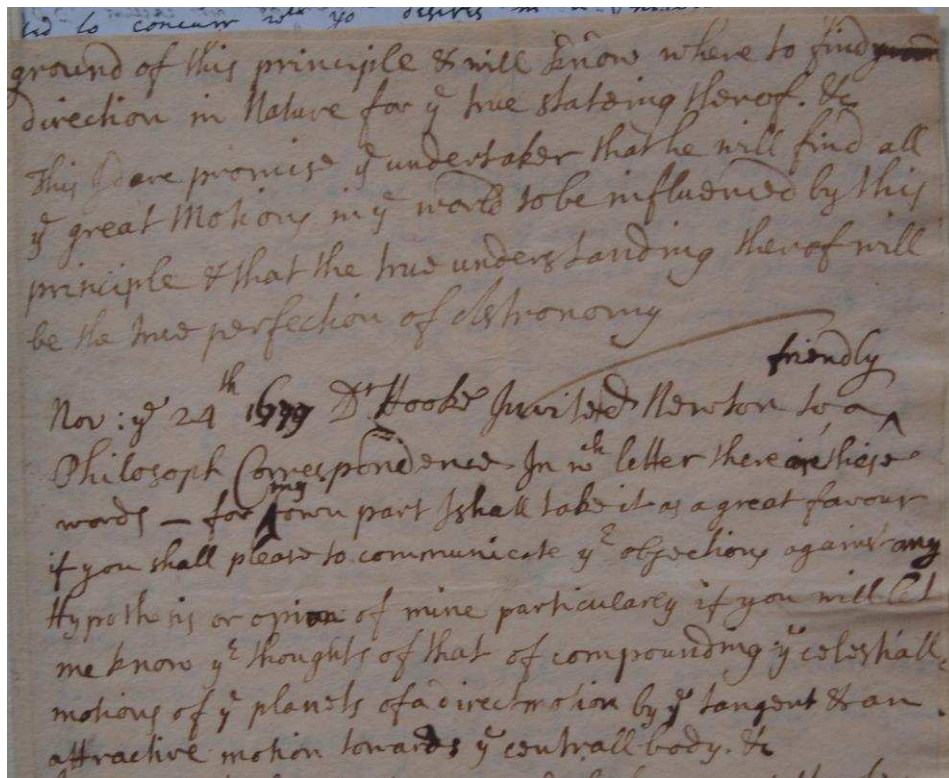 to concurr wth yo desires in
ground of this principle & will know where to find
direction in Nature for ye true stateing therof. &c
This I dare promise ye undertaker that he will find all
ye great Motions in ye world to be influenced by this
principle & that the true understanding therof will
be the true perfection of Astronomy
friendly
Nov: ye 24th 1679 Dr Hooke Invited Newton to a ^
Philosoph Correspondence In wch letter there are these
my
words — for ^ own part I shall take it as a great favour
if you shall please to communicate yr objections against any
Hypothesis or opinion of mine particularly if you will let
me know yr thoughts of that of compounding ye celestiall
motions of ye planets of a direct motion by ye tangent & an
attractive motion towards ye centrall body. &c